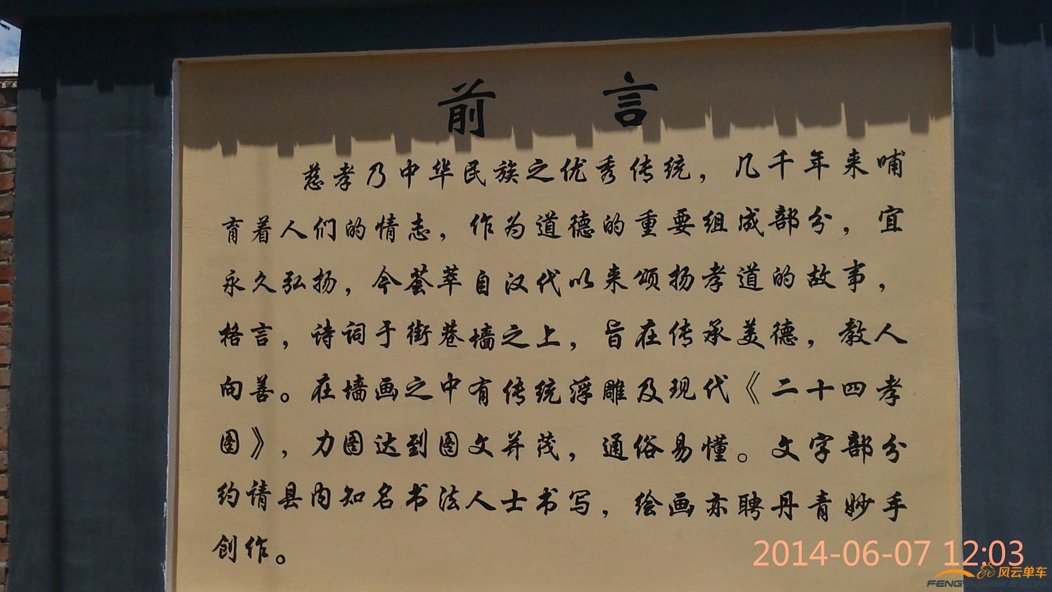 前言
慈孝乃中华民族之优秀传统，几千年来哺
育着人们的情志，作为道德的重要组成部分，宜
永久弘扬，今荟萃自汉代以来颂扬孝道的故事，
格言，诗词于街巷墙之上，旨在传承美德，教人
向善。在墙画之中有传统浮雕及现代《二十四孝
图》，力图达到图文并茂，通俗易懂。文字部分
约请县内知名书法人士书写，绘画亦聘丹青妙手
创作。
2014-06-07 12:03
风云单车